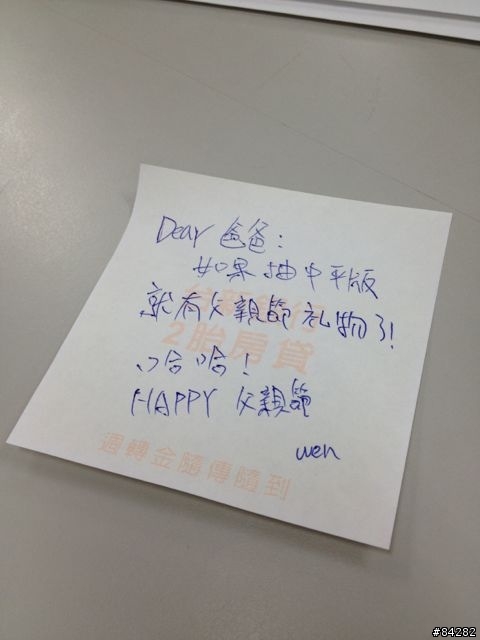 Dear 爸爸：
如果抽中平版
就有父親節礼物了!
台新銀行
2胎房貸
哈哈！
HAPPY 父親節
wen
週轉金隨傳隨到
#84282